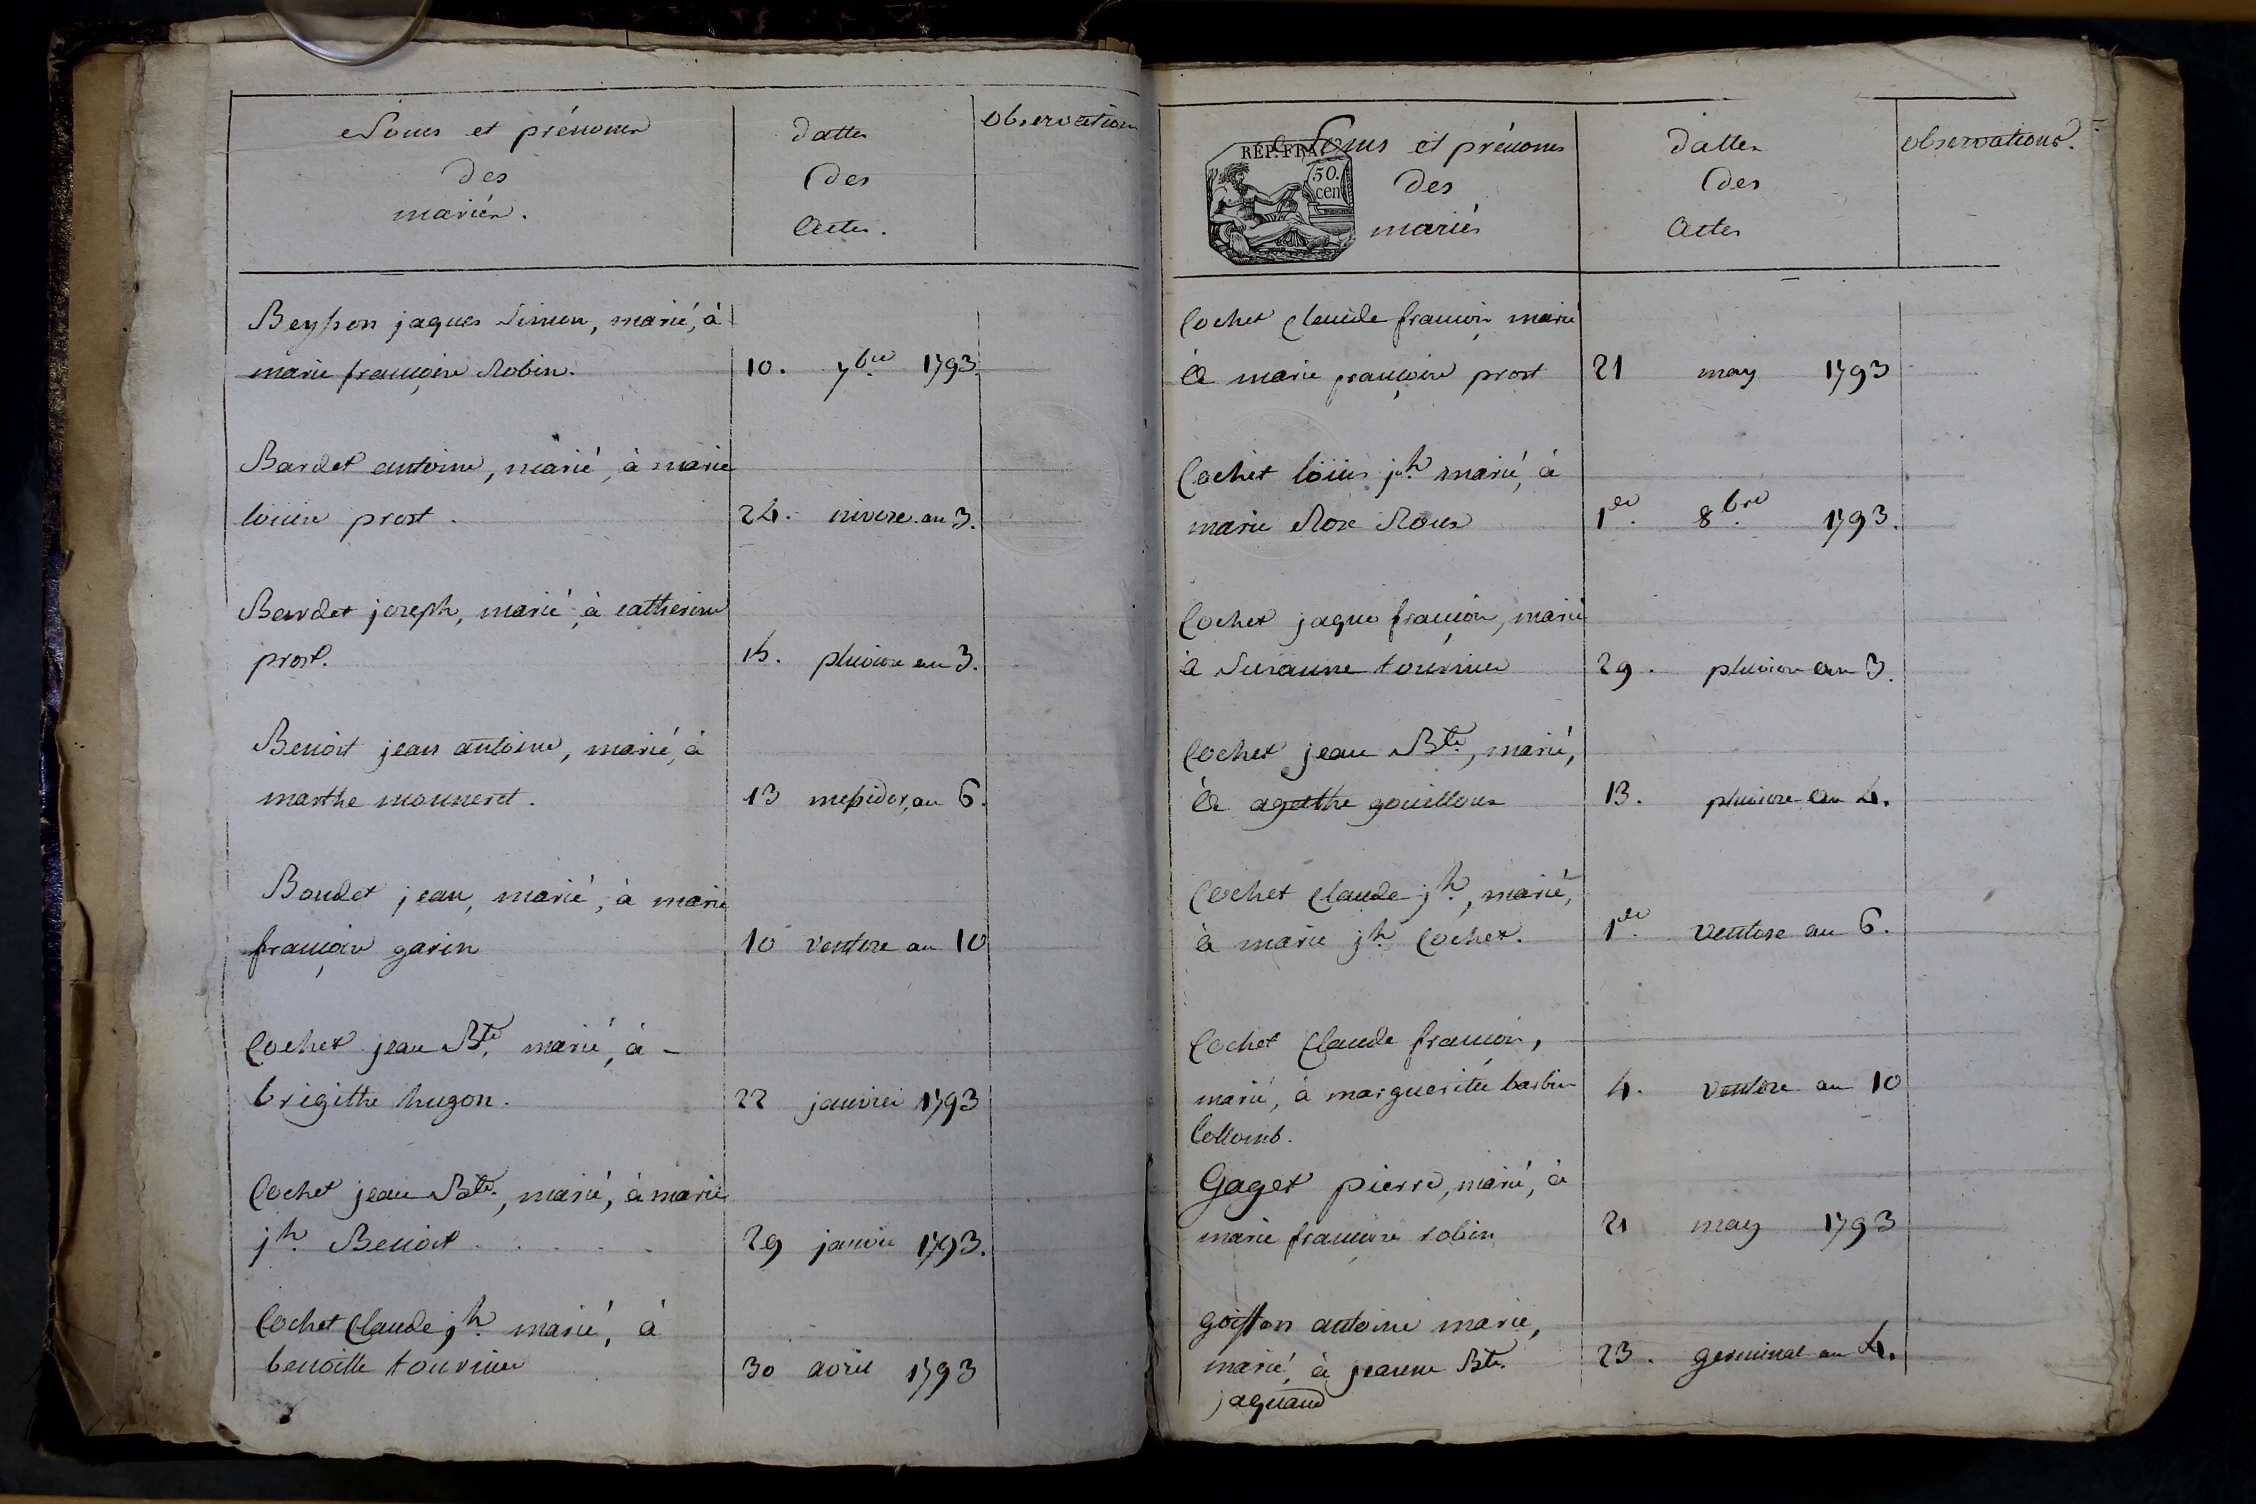 Noms et prénoms
des
mariés.
dattes
des
actes.
observations
Beysson jaques Simon, marié, à
marie françoise Robin.
10. 7bre 1793.
Bardet antoine, marié, à marie
loüise prost.
24. nivose an 3.
Bardet joseph, marié, à catherine
prost.
15. pluviose an 3.
Benoit jean antoine, marié, à
marthe monneret.
13 messidor, an 6.
Boudet jean, marié, à marie
françoise garin
10 ventose an 10
Cochet jean Bte. marié, à -
brigitte hugon.
22 janvier 1793
Cochet jean Bte., marié, à marie
jh. Benoit
29 janvier 1793.
Cochet Claude jh. marié, à
benoitte tournier
30 avril 1793
Noms et prénoms
des
mariés
RÉP. FRA
50.
cen
dattes
des
actes
observations.
Cochet Claude françois marié
à marie françoise prost
21 may 1793
Cochet loüis jh. marié, à
marie Rose Roux
1er. 8bre. 1793.
Cochet jaque françois, marié
à Suzanne tournier
29. pluviose an 3.
Cochet jean Bte., marié,
à agatthe gouilloux
13. pluviose an 4.
Cochet Claude jh., marié,
à marie jh. Cochet.
1er. ventose an 6.
Cochet Claude françois,
marié, à margueritte barbin
Collomb.
4. ventose an 10
Gaget pierre, marié, à
marie françoise robin
21 may 1793
goisson antoine marie,
marié, à jeanne Bte.
jaquand
23. germinal an 4.